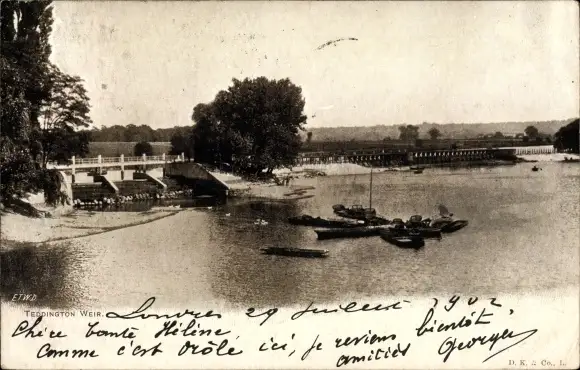 E.T.W.D.
TEDDINGTON WEIR.
Londres 29 Juillet 1902
Chère tante Hélène
Comme c'est drôle ici, je reviens bientôt.
amitiés Georges
D. K. & Co., L.